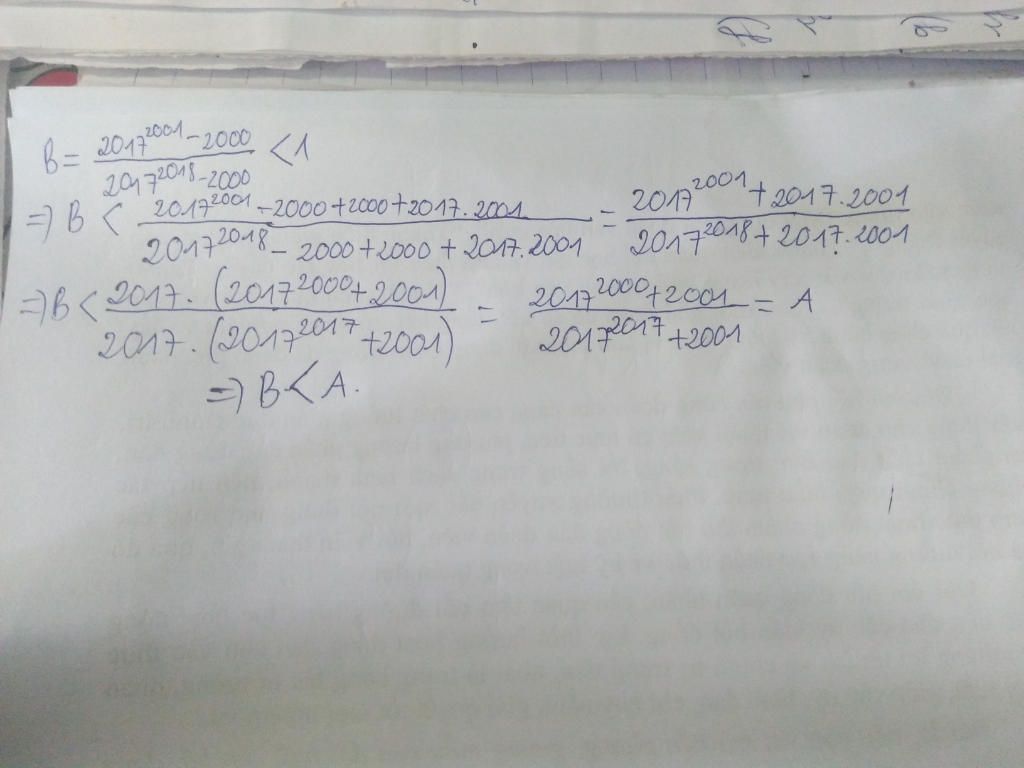 B = \frac{2017^{2001} - 2000}{2017^{2018} - 2000} < 1
=> B < \frac{2017^{2001} - 2000 + 2000 + 2017.2001}{2017^{2018} - 2000 + 2000 + 2017.2001} = \frac{2017^{2001} + 2017.2001}{2017^{2018} + 2017.2001}
=> B < \frac{2017.(2017^{2000} + 2001)}{2017.(2017^{2017} + 2001)} = \frac{2017^{2000} + 2001}{2017^{2017} + 2001} = A
=> B < A.